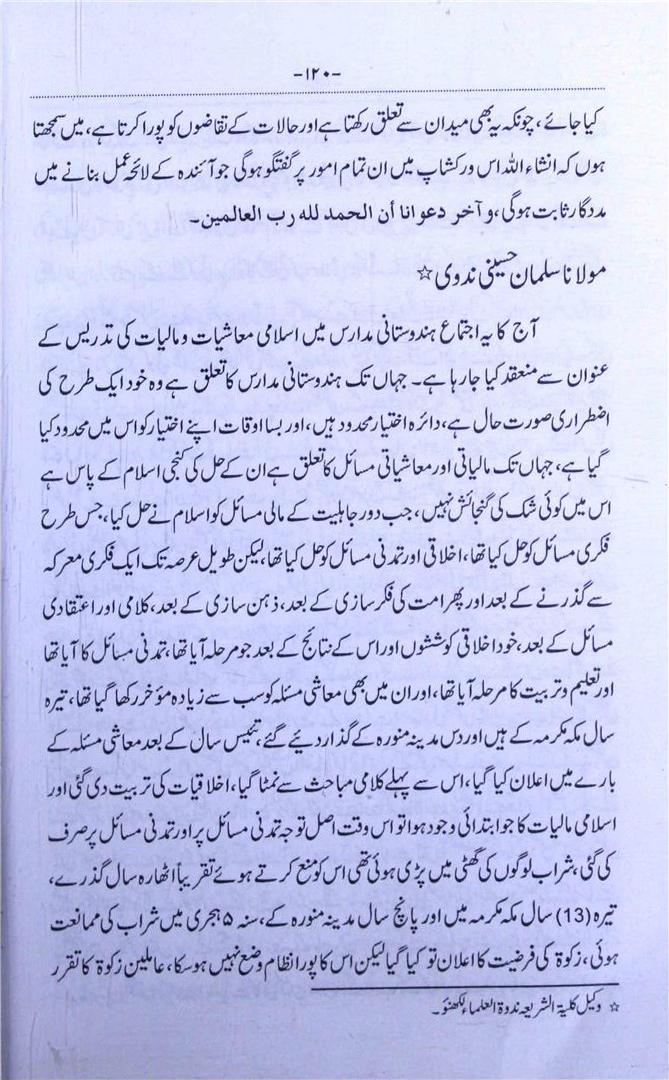 -۱۲۰-
کیا جائے، چونکہ یہ بھی میدان سے تعلق رکھتا ہے اور حالات کے تقاضوں کو پورا کرتا ہے، میں سمجھتا
ہوں کہ انشاء اللہ اس ورکشاپ میں ان تمام امور پر گفتگو ہوگی جو آئندہ کے لائحہ عمل بنانے میں
مددگار ثابت ہوگی، و آخر دعوانا أن الحمد لله رب العالمین۔
مولانا سلمان حسینی ندوی ☆
آج کا یہ اجتماع ہندوستانی مدارس میں اسلامی معاشیات و مالیات کی تدریس کے
عنوان سے منعقد کیا جارہا ہے۔ جہاں تک ہندوستانی مدارس کا تعلق ہے وہ خود ایک طرح کی
اضطراری صورت حال ہے، دائرہ اختیار محدود ہیں، اور بسا اوقات اپنے اختیار کو اس میں محدود کیا
گیا ہے، جہاں تک مالیاتی اور معاشیاتی مسائل کا تعلق ہے ان کے حل کی کنجی اسلام کے پاس ہے
اس میں کوئی شک کی گنجائش نہیں، جب دور جاہلیت کے مالی مسائل کو اسلام نے حل کیا، جس طرح
فکری مسائل کو حل کیا تھا، اخلاقی اور تمدنی مسائل کو حل کیا تھا، لیکن طویل عرصہ تک ایک فکری معرکہ
سے گذرنے کے بعد اور پھر امت کی فکر سازی کے بعد، ذہن سازی کے بعد، کلامی اور اعتقادی
مسائل کے بعد، خود اخلاقی کوششوں اور اس کے نتائج کے بعد جو مرحلہ آیا تھا، تمدنی مسائل کا آیا تھا
اور تعلیم و تربیت کا مرحلہ آیا تھا، اور ان میں بھی معاشی مسئلہ کو سب سے زیادہ مؤخر رکھا گیا تھا، تیرہ
سال مکہ مکرمہ کے ہیں اور دس مدینہ منورہ کے گذار دیئے گئے، تئیس سال کے بعد معاشی مسئلہ کے
بارے میں اعلان کیا گیا، اس سے پہلے کلامی مباحث سے نمٹا گیا، اخلاقیات کی تربیت دی گئی اور
اسلامی مالیات کا جو ابتدائی وجود ہوا تو اس وقت اصل توجہ تمدنی مسائل پر اور تمدنی مسائل پر صرف
کی گئی، شراب لوگوں کی گھٹی میں پڑی ہوئی تھی اس کو منع کرتے ہوئے تقریباً اٹھارہ سال گذرے،
تیرہ (13) سال مکہ مکرمہ میں اور پانچ سال مدینہ منورہ کے، سنہ ۵ ہجری میں شراب کی ممانعت
ہوئی، زکوۃ کی فرضیت کا اعلان تو کیا گیا لیکن اس کا پورا نظام وضع نہیں ہوسکا، عاملین زکوۃ کا تقرر
☆ وکیل کلیۃ الشریعہ ندوۃ العلماء لکھنؤ۔